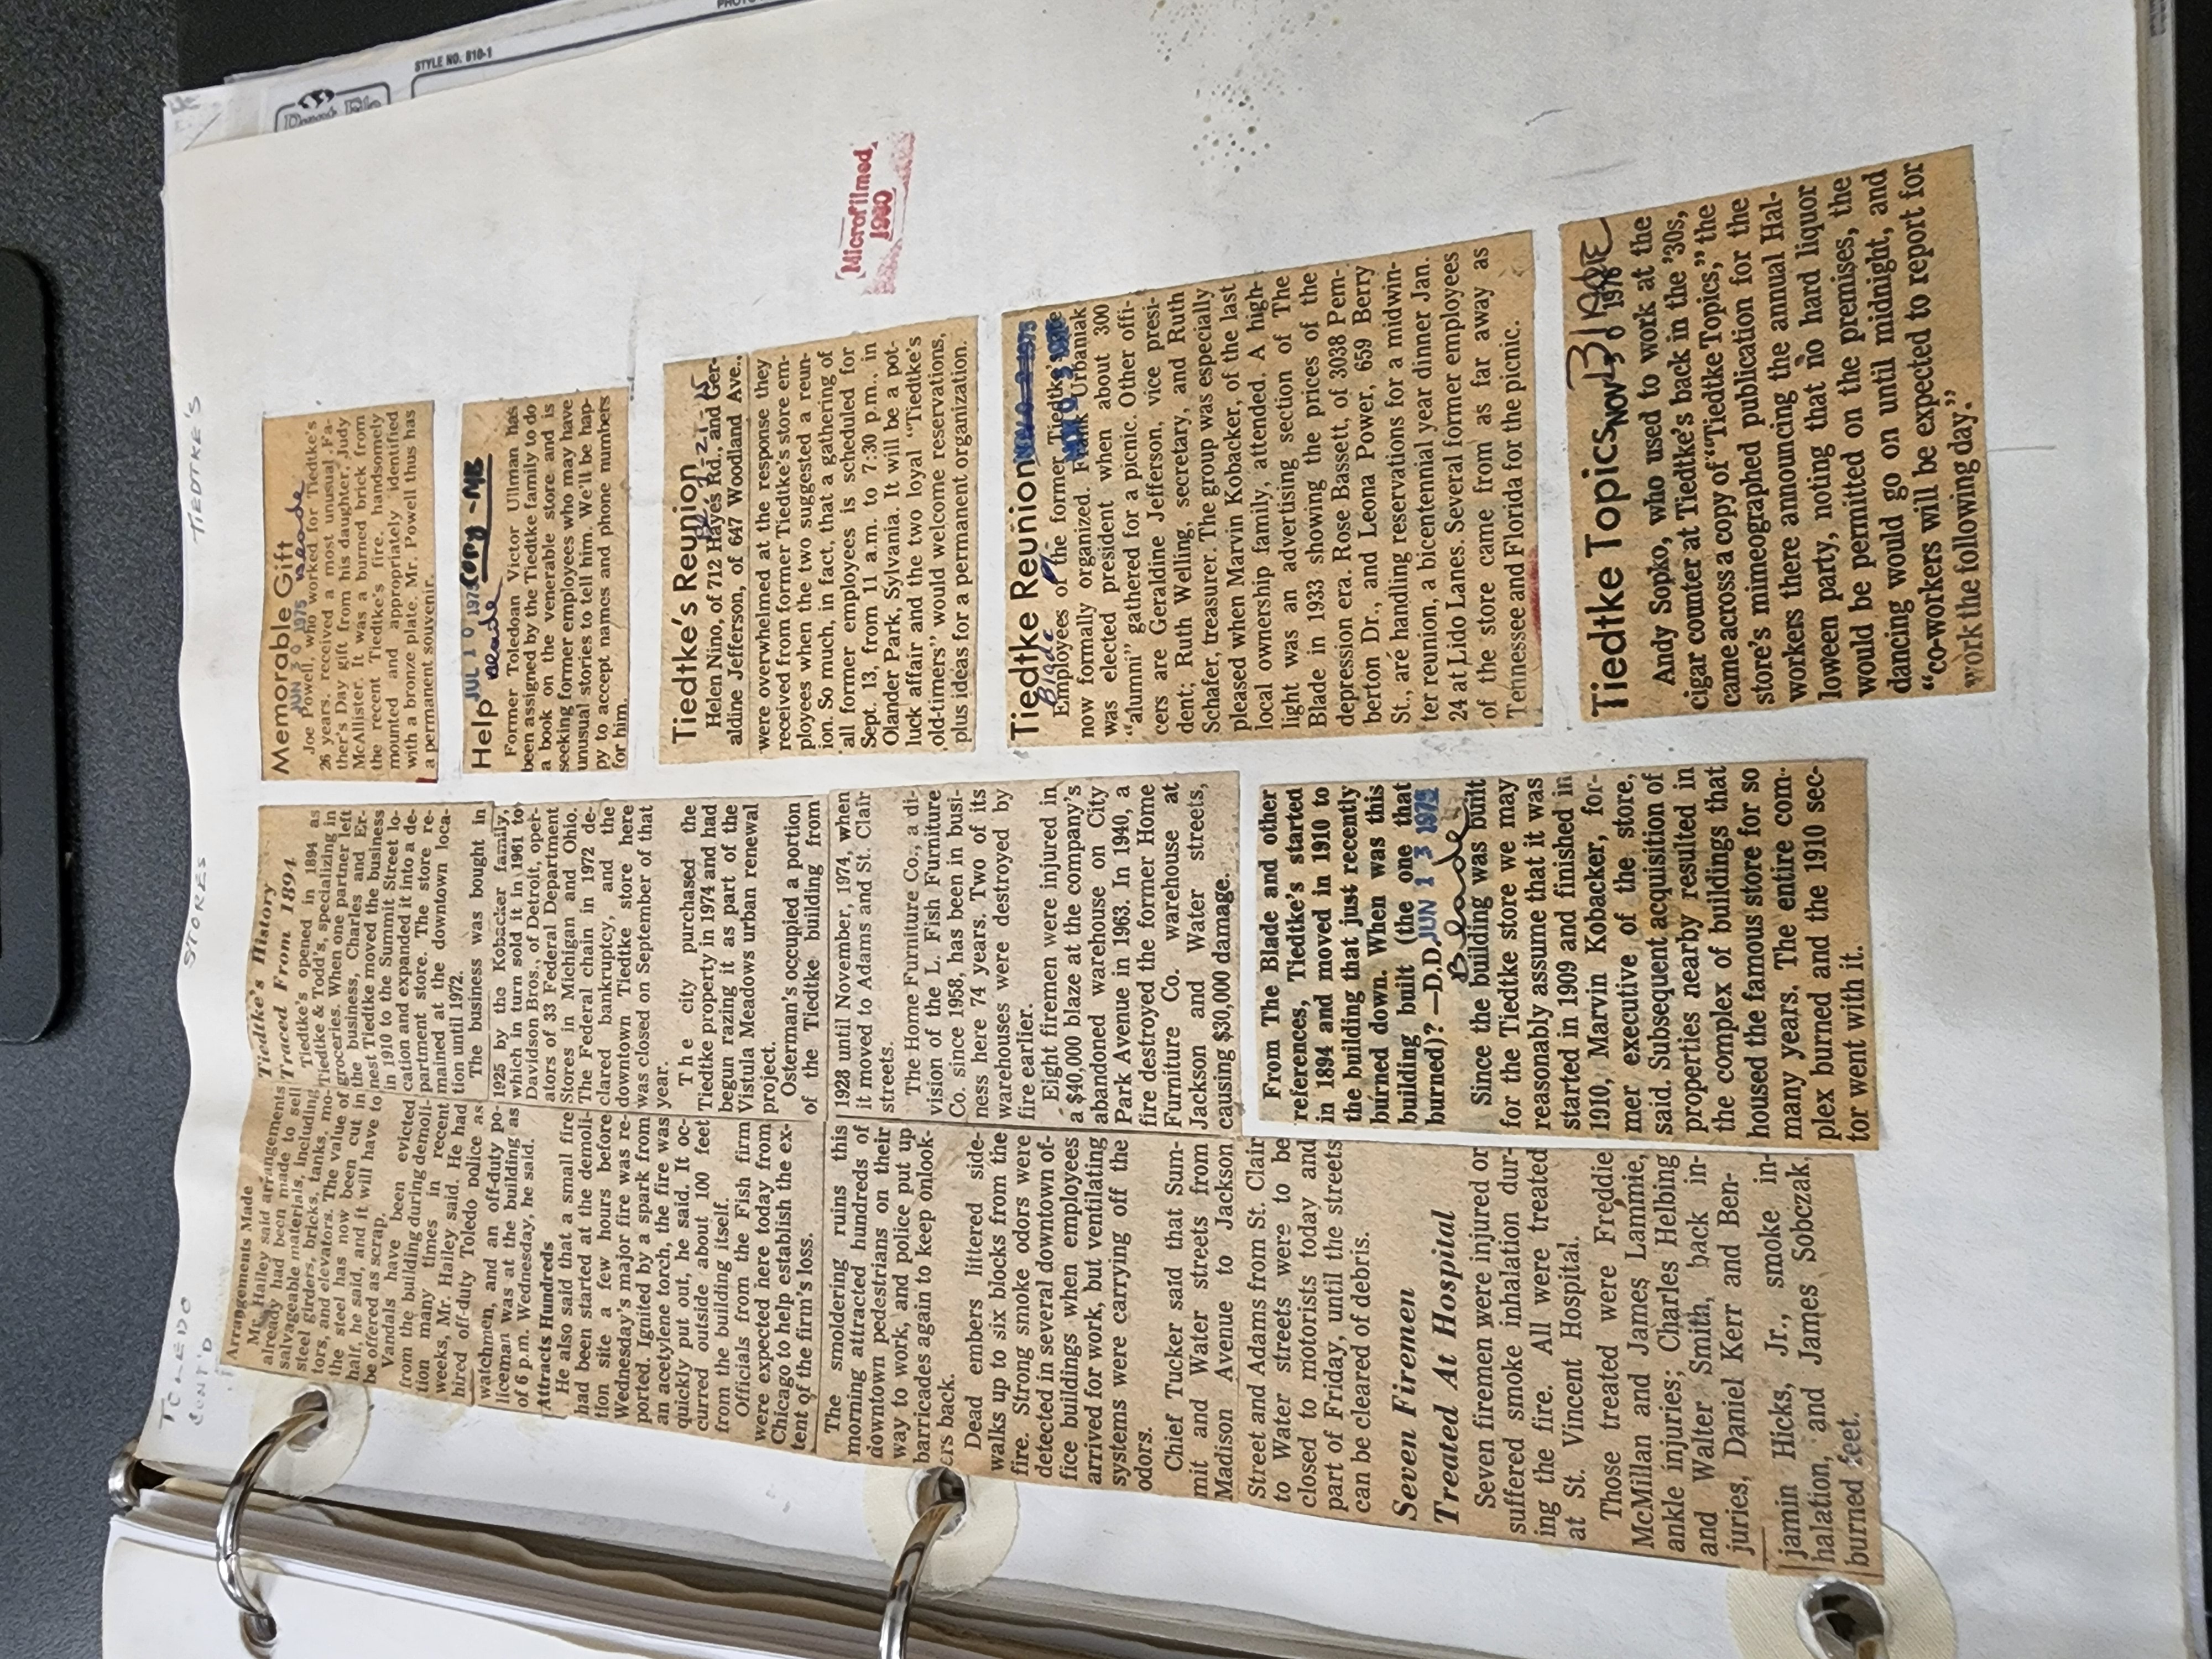 TOLEDO
CONT'D
STORES
TIEDTKE'S
Arrangements Made
Mr. Hailey said arrangements
already had been made to sell
salvageable materials, including
steel girders, bricks, tanks, mo-
tors, and elevators. The value of
the steel has now been cut in
half, he said, and it will have to
be offered as scrap.
Vandals have been evicted
from the building during demoli-
tion many times in recent
weeks, Mr. Hailey said. He had
hired off-duty Toledo police as
watchmen, and an off-duty po-
liceman was at the building as
of 6 p.m. Wednesday, he said.
Attracts Hundreds
He also said that a small fire
had been started at the demoli-
tion site a few hours before
Wednesday's major fire was re-
ported. Ignited by a spark from
an acetylene torch, the fire was
quickly put out, he said. It oc-
curred outside about 100 feet
from the building itself.
Officials from the Fish firm
were expected here today from
Chicago to help establish the ex-
tent of the firm's loss.
The smoldering ruins this
morning attracted hundreds of
downtown pedestrians on their
way to work, and police put up
barricades again to keep onlook-
ers back.
Dead embers littered side-
walks up to six blocks from the
fire. Strong smoke odors were
detected in several downtown of-
fice buildings when employees
arrived for work, but ventilating
systems were carrying off the
odors.
Chief Tucker said that Sum-
mit and Water streets from
Madison Avenue to Jackson
Street and Adams from St. Clair
to Water streets were to be
closed to motorists today and
part of Friday, until the streets
can be cleared of debris.
Seven Firemen
Treated At Hospital
Seven firemen were injured or
suffered smoke inhalation dur-
ing the fire. All were treated
at St. Vincent Hospital.
Those treated were Freddie
McMillan and James Lammie,
ankle injuries; Charles Helbing
and Walter Smith, back in-
juries, Daniel Kerr and Ben-
jamin Hicks, Jr., smoke in-
halation, and James Sobczak,
burned feet.
Tiedtke's History
Traced From 1894
Tiedtke's opened in 1894 as
Tiedtke & Todd's, specializing in
groceries. When one partner left
the business, Charles and Er-
nest Tiedtke moved the business
in 1910 to the Summit Street lo-
cation and expanded it into a de-
partment store. The store re-
mained at the downtown loca-
tion until 1972.
The business was bought in
1925 by the Kobacker family,
which in turn sold it in 1961 to
Davidson Bros., of Detroit, oper-
ators of 33 Federal Department
Stores in Michigan and Ohio.
The Federal chain in 1972 de-
clared bankruptcy, and the
downtown Tiedtke store here
was closed on September of that
year.
The city purchased the
Tiedtke property in 1974 and had
begun razing it as part of the
Vistula Meadows urban renewal
project.
Osterman's occupied a portion
of the Tiedtke building from
1928 until November, 1974, when
it moved to Adams and St. Clair
streets.
The Home Furniture Co., a di-
vision of the L. Fish Furniture
Co. since 1958, has been in busi-
ness here 74 years. Two of its
warehouses were destroyed by
fire earlier.
Eight firemen were injured in
a $40,000 blaze at the company's
abandoned warehouse on City
Park Avenue in 1963. In 1940, a
fire destroyed the former Home
Furniture Co. warehouse at
Jackson and Water streets,
causing $30,000 damage.
From The Blade and other
references, Tiedtke's started
in 1894 and moved in 1910 to
the building that just recently
burned down. When was this
building built (the one that
burned)? —D.D. JUN 13 1975
Blade
Since the building was built
for the Tiedtke store we may
reasonably assume that it was
started in 1909 and finished in
1910, Marvin Kobacker, for-
mer executive of the store,
said. Subsequent acquisition of
properties nearby resulted in
the complex of buildings that
housed the famous store for so
many years. The entire com-
plex burned and the 1910 sec-
tor went with it.
Memorable Gift
JUN 30 1975 Blade
Joe Powell, who worked for Tiedtke's
26 years, received a most unusual Fa-
ther's Day gift from his daughter, Judy
McAllister. It was a burned brick from
the recent Tiedtke's fire, handsomely
mounted and appropriately identified
with a bronze plate. Mr. Powell thus has
a permanent souvenir.
Help JUL 10 1975 Copy-MB
Blade
Former Toledoan Victor Ullman has
been assigned by the Tiedtke family to do
a book on the venerable store and is
seeking former employees who may have
unusual stories to tell him. We'll be hap-
py to accept names and phone numbers
for him.
Tiedtke's Reunion
Helen Nino, of 712 Hayes Rd., and Ger-
aldine Jefferson, of 647 Woodland Ave.,
were overwhelmed at the response they
received from former Tiedtke's store em-
ployees when the two suggested a reun-
ion. So much, in fact, that a gathering of
all former employees is scheduled for
Sept. 13, from 11 a.m. to 7:30 p.m., in
Olander Park, Sylvania. It will be a pot-
luck affair and the two loyal "Tiedtke's
old-timers" would welcome reservations,
plus ideas for a permanent organization.
Microfilmed
1980
Tiedtke Reunion
Blade
Employees of the former Tiedtke's
now formally organized. Frank Urbaniak
was elected president when about 300
"alumni" gathered for a picnic. Other offi-
cers are Geraldine Jefferson, vice presi-
dent; Ruth Welling, secretary, and Ruth
Schafer, treasurer. The group was especially
pleased when Marvin Kobacker, of the last
local ownership family, attended. A high-
light was an advertising section of The
Blade in 1933 showing the prices of the
depression era. Rose Bassett, of 3038 Pem-
berton Dr., and Leona Power, 659 Berry
St., are handling reservations for a midwin-
ter reunion, a bicentennial year dinner Jan.
24 at Lido Lanes. Several former employees
of the store came from as far away as
Tennessee and Florida for the picnic.
Tiedtke Topics NOV 1976
BLADE
Andy Sopko, who used to work at the
cigar counter at Tiedtke's back in the '30s,
came across a copy of "Tiedtke Topics," the
store's mimeographed publication for the
workers there announcing the annual Hal-
loween party, noting that no hard liquor
would be permitted on the premises, the
dancing would go on until midnight, and
"co-workers will be expected to report for
work the following day."
STYLE NO. 810-1